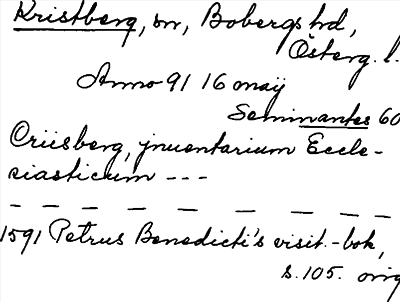 Kristberg, sn, Bobergs hd,
Österg. l.
Anno 91 16 maÿ
Seminantes 60
Criisberg, jnuentarium Eccle-
siasticum ---
1591 Petrus Benedicti's visit.-bok,
s. 105. orig